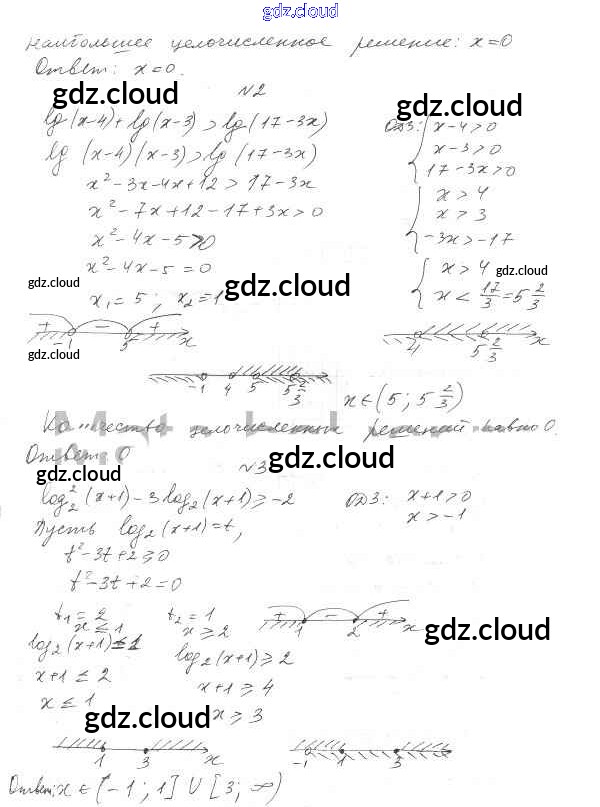 gdz.cloud
наибольшее целочисленное решение: x=0
Ответ: x=0.
gdz.cloud
gdz.cloud
№2
lg(x-4)+lg(x-3)>lg(17-3x)
lg (x-4)(x-3)>lg(17-3x)
x²-3x-4x+12>17-3x
x²-7x+12-17+3x>0
x²-4x-5>0
x²-4x-5=0
x₁=5; x₂=1
ОДЗ: { x-4>0
x-3>0
17-3x>0
{ x>4
x>3
-3x>-17
{ x>4
x<17/3=5 2/3
gdz.cloud
gdz.cloud
gdz.cloud
gdz.cloud
+ - +
-1 5 x
4 5 2/3 x
-1 4 5 5 2/3
x∈(5; 5 2/3)
целочисленных решений равно 0.
Ответ: 0
gdz.cloud
gdz.cloud
№3
log₂²(x+1)-3log₂(x+1)≥-2
ОДЗ: x+1>0
x>-1
Пусть log₂(x+1)=t,
t²-3t+2≥0
t²-3t+2=0
t₁=2 t₂=1
x≤1 x≥2
+ - +
1 2 x
gdz.cloud
log₂(x+1)≤1
log₂(x+1)≥2
x+1≤2
x+1≥4
x≤1
x≥3
gdz.cloud
1 3 x
-1 1 3
Ответ: x∈(-1; 1]∪[3; ∞)